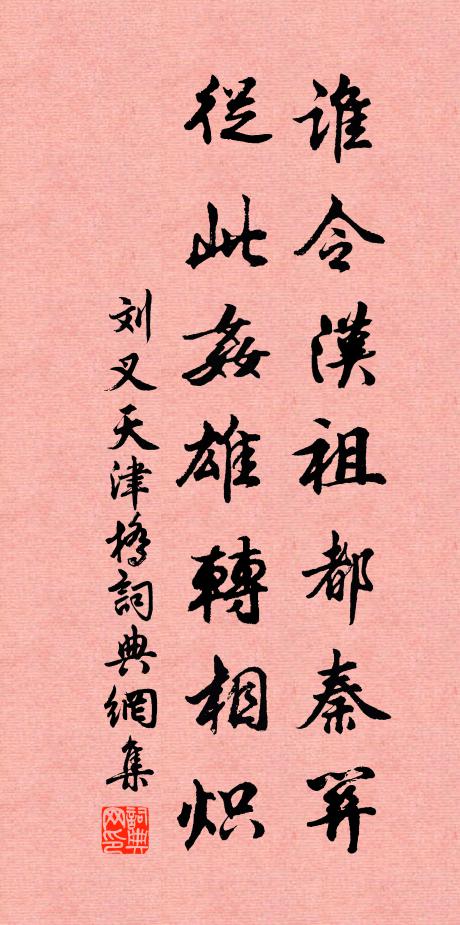 谁令漢祖都秦關
從此姦雄轉相炽
刘叉天津橋詞典網集
詞典网印